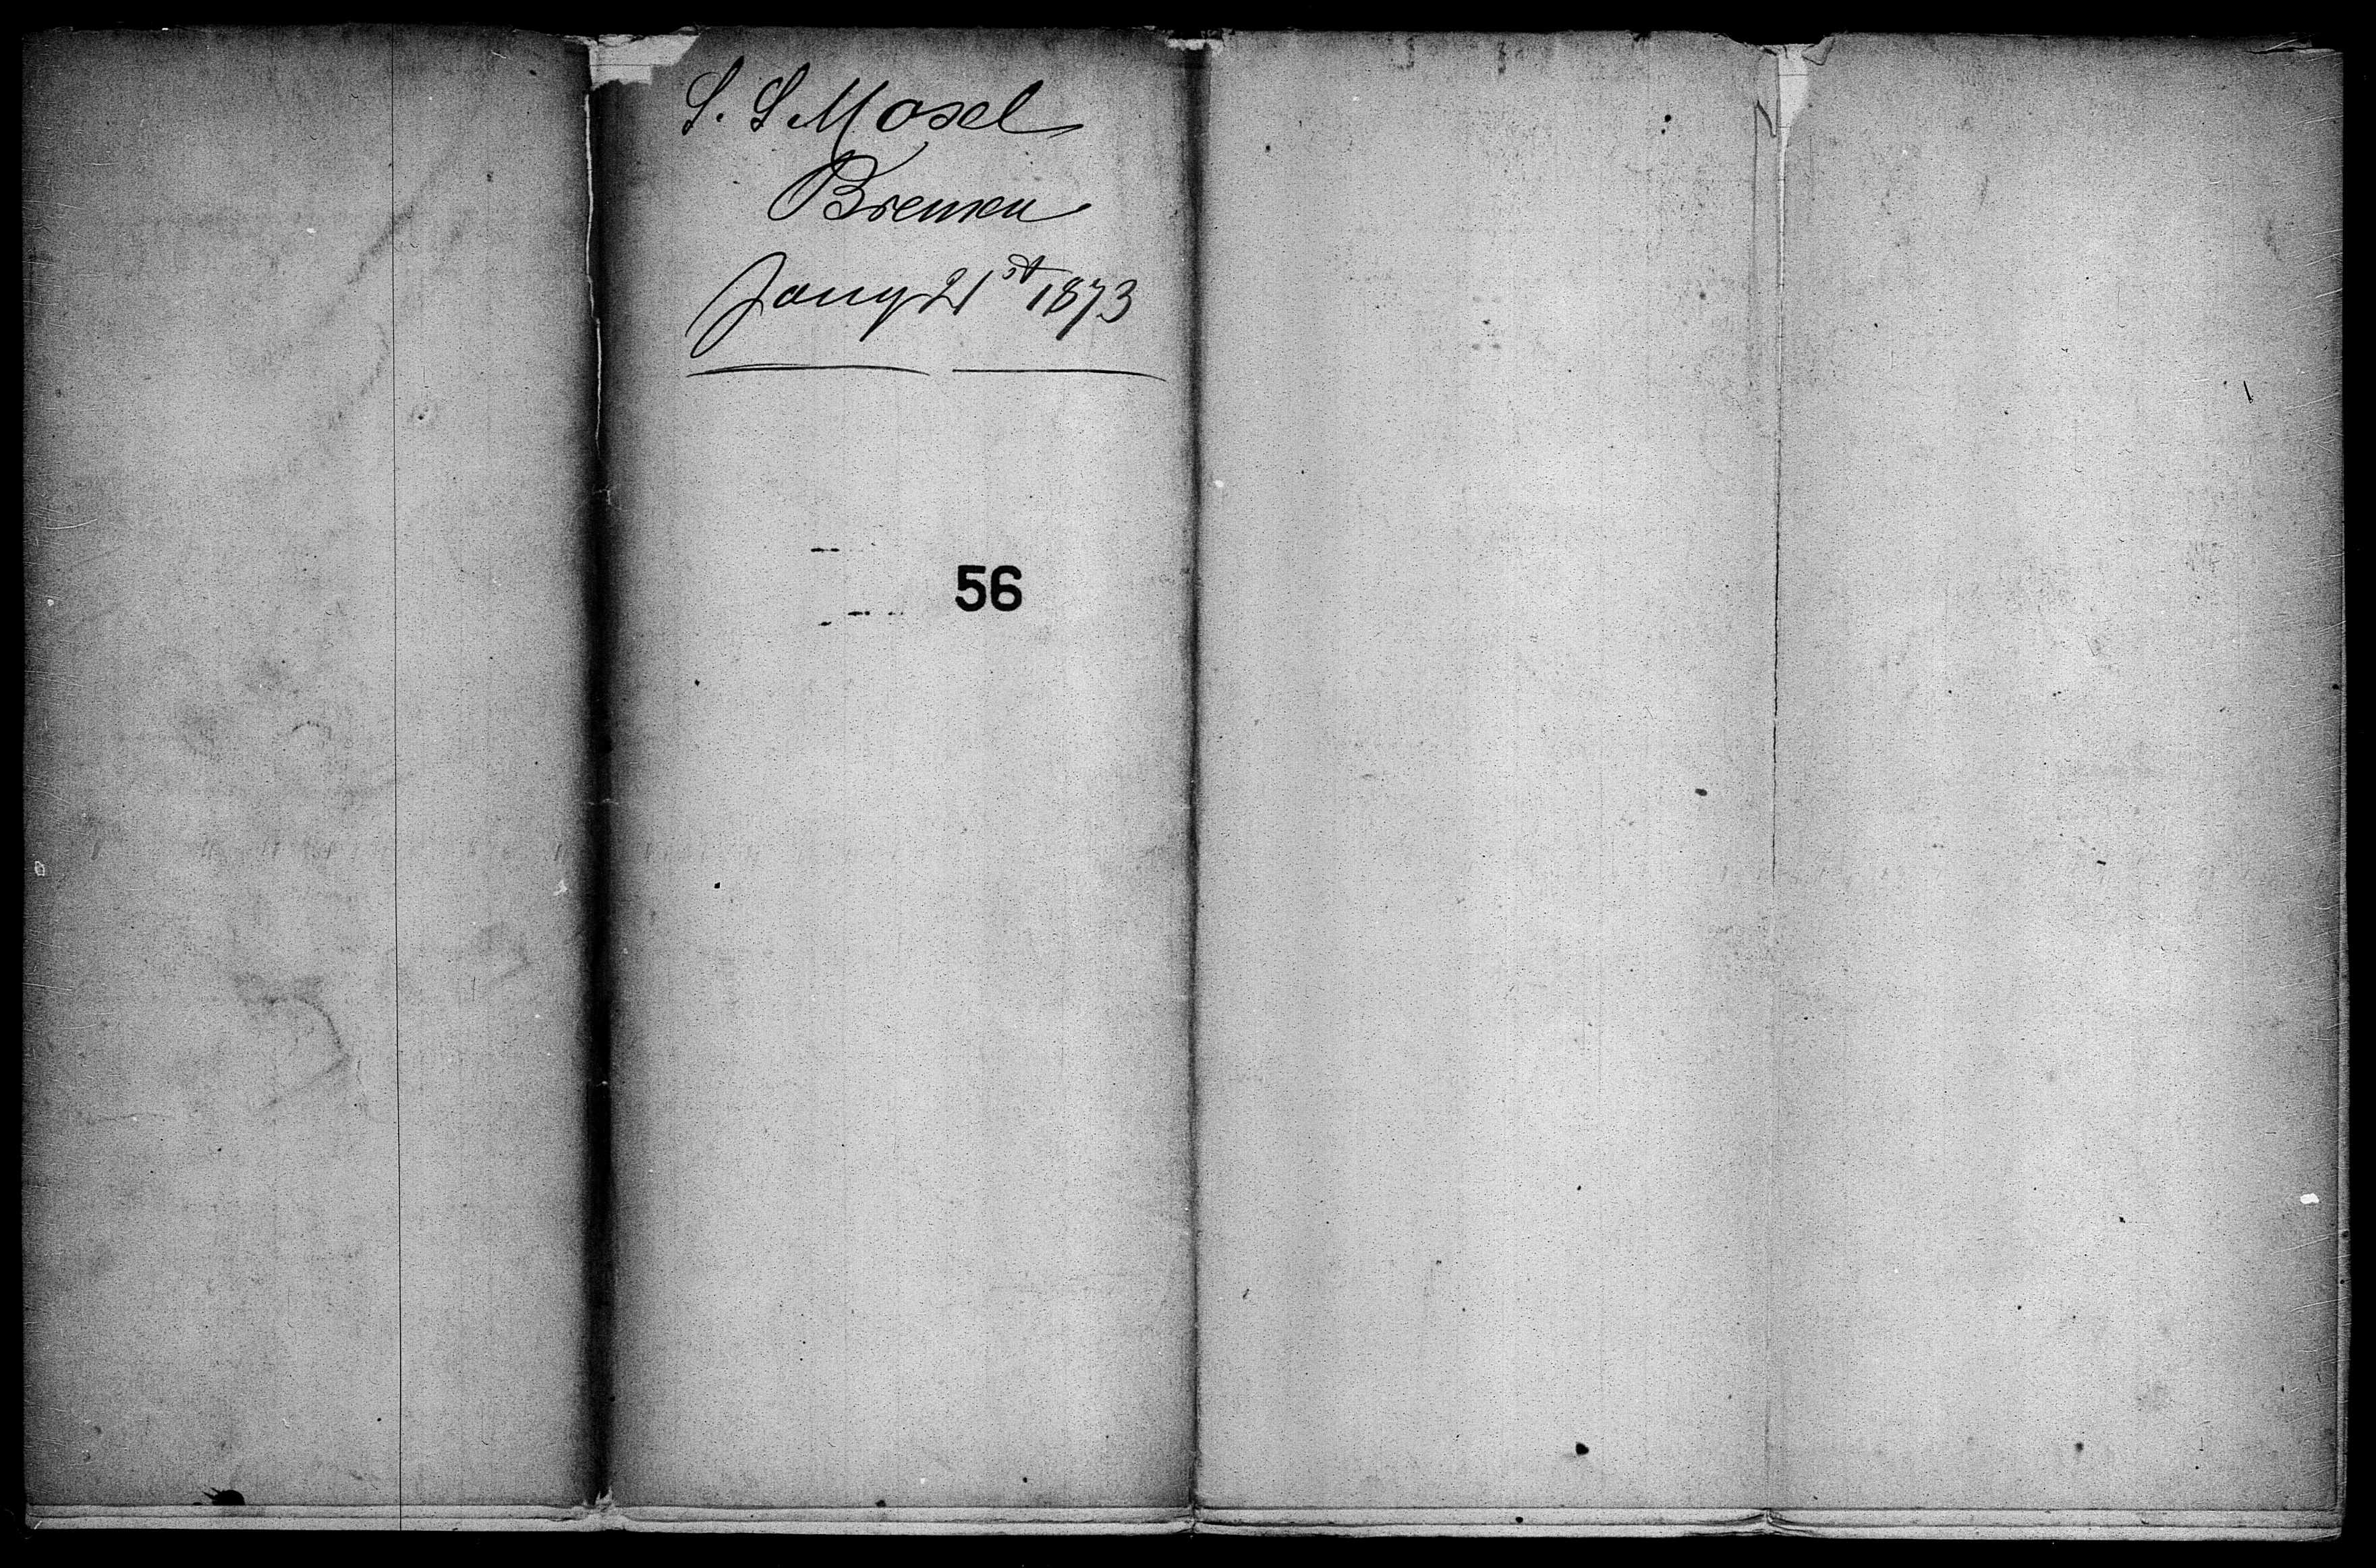 S. S Mosel
Bremen
Jany 21st 1873
56